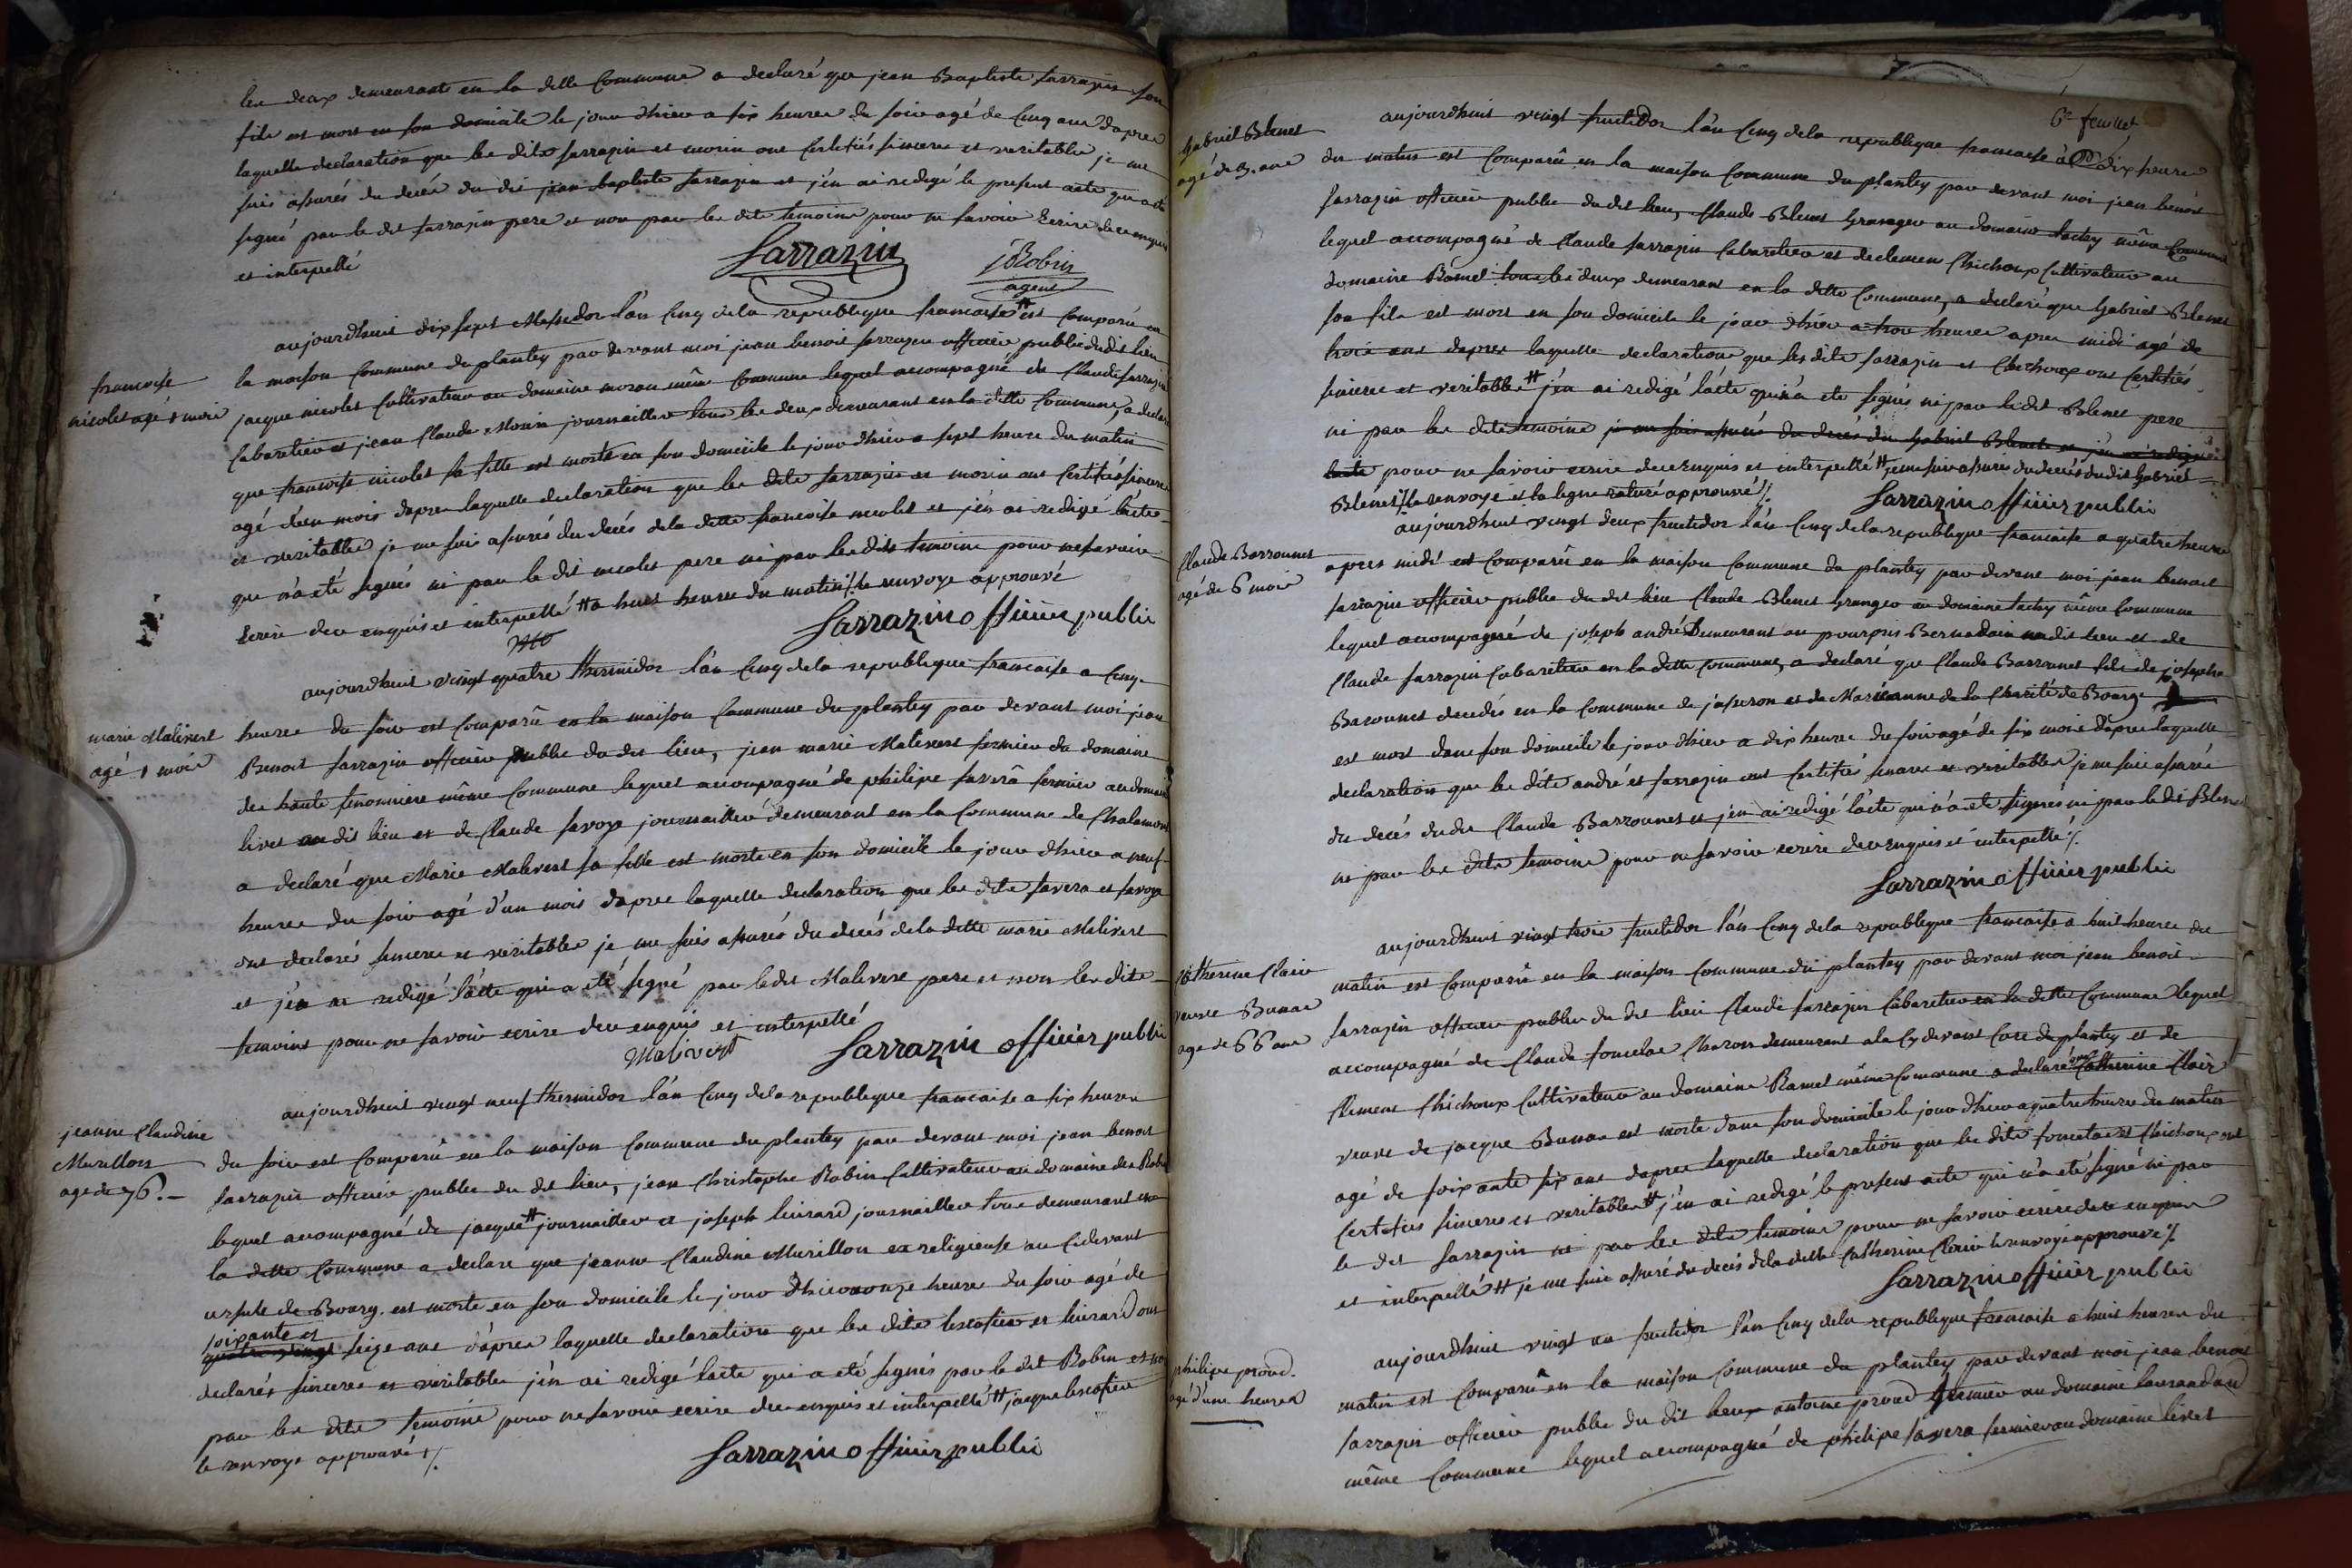 les deux demeurants en la ditte Commune a declaré que jean Baptiste sarrazin son
fils est mort en son domicile le jour d'hier a six heures du soir agé de Cinq ans d'apres
laquelle declaration que les dits sarrazin et morin ont Certifiés sincere et veritable je me
suis assurés du decés du dit jean baptiste sarrazin et j'en ai redigé le present acte qui a été
signé par le dit sarrazin pere et non par les dits temoins pour ne savoir Ecrire de ce enquis
et interpellé
Sarrazin
Robin
agent
aujourdhuit dix sept Messidor l'an Cinq de la republique francaise # est Comparu en
francoise
nicolet agé 1 mois
la maison Commune du plantey par devant moi jean benoit sarrazin officier public du dit lieu
jacque nicolet Cultivateur au domaine moran même Commune lequel accompagné de Claude sarrazin
Cabaretier et jean Claude Morin journaillier tous les deux demeurant en la ditte Commune, a declaré
que francoise nicolet sa fille est morte en son domicile le jour d'hier a sept heure du matin
agé d'un mois d'apres laquelle declaration que les dits sarrazin et morin ont Certifiés sincere
et veritable je me suis assurés du decés de la ditte francoise nicolet et j'en ai redigé l'acte
qui n'a été signés ni par le dit nicolet pere ni par les dits temoins pour ne savoir
Ecrire de ce enquis et interpellé # a huit heures du matin /. le renvoye approuvé
Sarrazin officier public
aujourdhuit vingt quatre thermidor l'an Cinq de la republique francaise a Cinq
marie Malivert
agé 1 mois
heures du soir est Comparû en la maison Commune du plantey par devant moi jean
Benoit sarrazin officier public du dit lieu, jean marie Malivert fermier du domaine
des haute même Commune lequel accompagné de philipe savera fermier au domaine
livet au dit lieu et de Claude savoye journaillier demeurant en la Commune de Chalamont
a declaré que Marie Malivert sa fille est morte en son domicile le jour d'hier a neuf
heures du soir agé d'un mois d'apres laquelle declaration que les dits savera et savoye
ont declaré sincere et veritable je me suis assurés du decés de la ditte marie Malivert
et j'en ai redigé l'acte qui a été signé par le dit Malivert pere et non les dits
temoins pour ne savoir ecrire de ce enquis et interpellé
Malivert
Sarrazin officier public
aujourdhuit vingt neuf thermidor l'an Cinq de la republique francaise a six heures
jeanne Claudine
Murillon
age de 76. –
du soir est Comparû en la maison Commune du plantey par devant moi jean benoit
sarrazin officier public du dit lieu, jean Christophe Robin Cultivateur au domaine des Robin
lequel accompagné de jacque # journaillier et joseph liurard journaillier tous demeurant en
la ditte Commune a declare que jeanne Claudine Murillon ex religieuse au Cidevant
ursule de Bourg. est morte en son domicile le jour d'hier a onze heures du soir agé de
soixante et
quatre vingt seize ans d'apres laquelle declaration que les dits lescotier et liurard ont
declarés sincere et veritable j'en ai redigé l'acte qui a été signés par le dit Robin et non
par les dits temoins pour ne savoir ecrire de ce enquis et interpellé # jacque lescotier
le renvoye approuvé /.
Sarrazin officier public
6e feuillet
aujourdhuit vingt fructidor l'an Cinq de la republique francaise à dix heures
Gabriel Blenet
agé de 3. ans
du matin est Comparû en la maison Commune du plantey par devant moi jean benoit
sarrazin officier public du dit lieu, Claude Blenet Granger au domaine tachy même Commune
lequel accompagné de Claude sarrazin Cabaretier et de Clement Chichoux Cultivateur au
domaine Ramel tous les deux demeurant en la ditte Commune, a declaré que Gabriel Blenet
son fils est mort en son domicile le jour d'hier a trois heures apres midi agé de
trois ans d'apres laquelle declaration que les dits sarrazin et Chichoux ont Certifiés
sincere et veritable # j'en ai redigé l'acte qui n'a été signés ni par le dit Blenet pere
ni par les dits temoins je me suis assurés du decés du Gabriel Blenet et j'en ai redigé
l'acte pour ne savoir ecrire de ce enquis et interpellé # je me suis assurés du decés du dit Gabriel
Blenet /. le renvoye et la ligne raturé approuvé /.
Sarrazin officier public
aujourdhuit vingt deux fructidor l'an Cinq de la republique francaise a quatre heures
Claude Barrounet
agé de 6 mois
apres midi est Comparû en la maison Commune du plantey par devant moi jean benoit
sarrazin officier public du dit lieu Claude Blenet Granger au domaine tachy même Commune
lequel accompagné de joseph andré Demeurant au pourpris Bernadain au dit lieu et de
Claude sarrazin Cabaretier en la ditte Commune, a declaré que Claude Barrounet fils de joseph
Barounet decedés en la Commune de jasseron et de Marieanne de la Charité de Bourg
est mort dans son domicile le jour d'hier a dix heures du soir agé de six mois d'apres laquelle
declaration que les dits andré et sarrazin ont Certifié sincere et veritable je me suis assuré
du decés du dit Claude Barrounet et j'en ai redigé l'acte qui n'a été signés ni par le dit Blenet
ni par les dits temoins pour ne savoir ecrire de ce enquis et interpellé /.
Sarrazin officier public
aujourdhuit vingt trois fructidor l'an Cinq de la republique francaise a huit heures du
Catherine Clair
veuve Bunar
age de 66 ans
matin est Comparû en la maison Commune du plantey par devant moi jean benoit
sarrazin officier public du dit lieu Claude sarrazin Cabaretier en la ditte Commune lequel
accompagné de Claude Charon demeurant a la Cy devant Cure du plantey et de
Clement Chichoux Cultivateur au domaine Ramel même Commune a declaré que Catherine Clair
veuve de jacque Bunar est morte dans son domicile le jour d'hier a quatre heures du matin
agé de soixante six ans d'apres laquelle declaration que les dits et Chichoux ont
Certifiés sincere et veritable # j'en ai redigé le present acte qui n'a été signé ni par
le dit sarrazin ni par les dits temoins pour ne savoir ecrire de ce enquis
et interpellé # je me suis assuré du decés de la ditte Catherine Clair le renvoye approuvé /.
Sarrazin officier public
aujourdhuit vingt fructidor l'an Cinq de la republique francaise a huit heures du
philipe proud.
agé d'une heure
matin est Comparû en la maison Commune du plantey par devant moi jean benoit
sarrazin officier public du dit lieu antoine proud fermier au domaine
même Commune lequel accompagné de philipe savera fermier au domaine livet